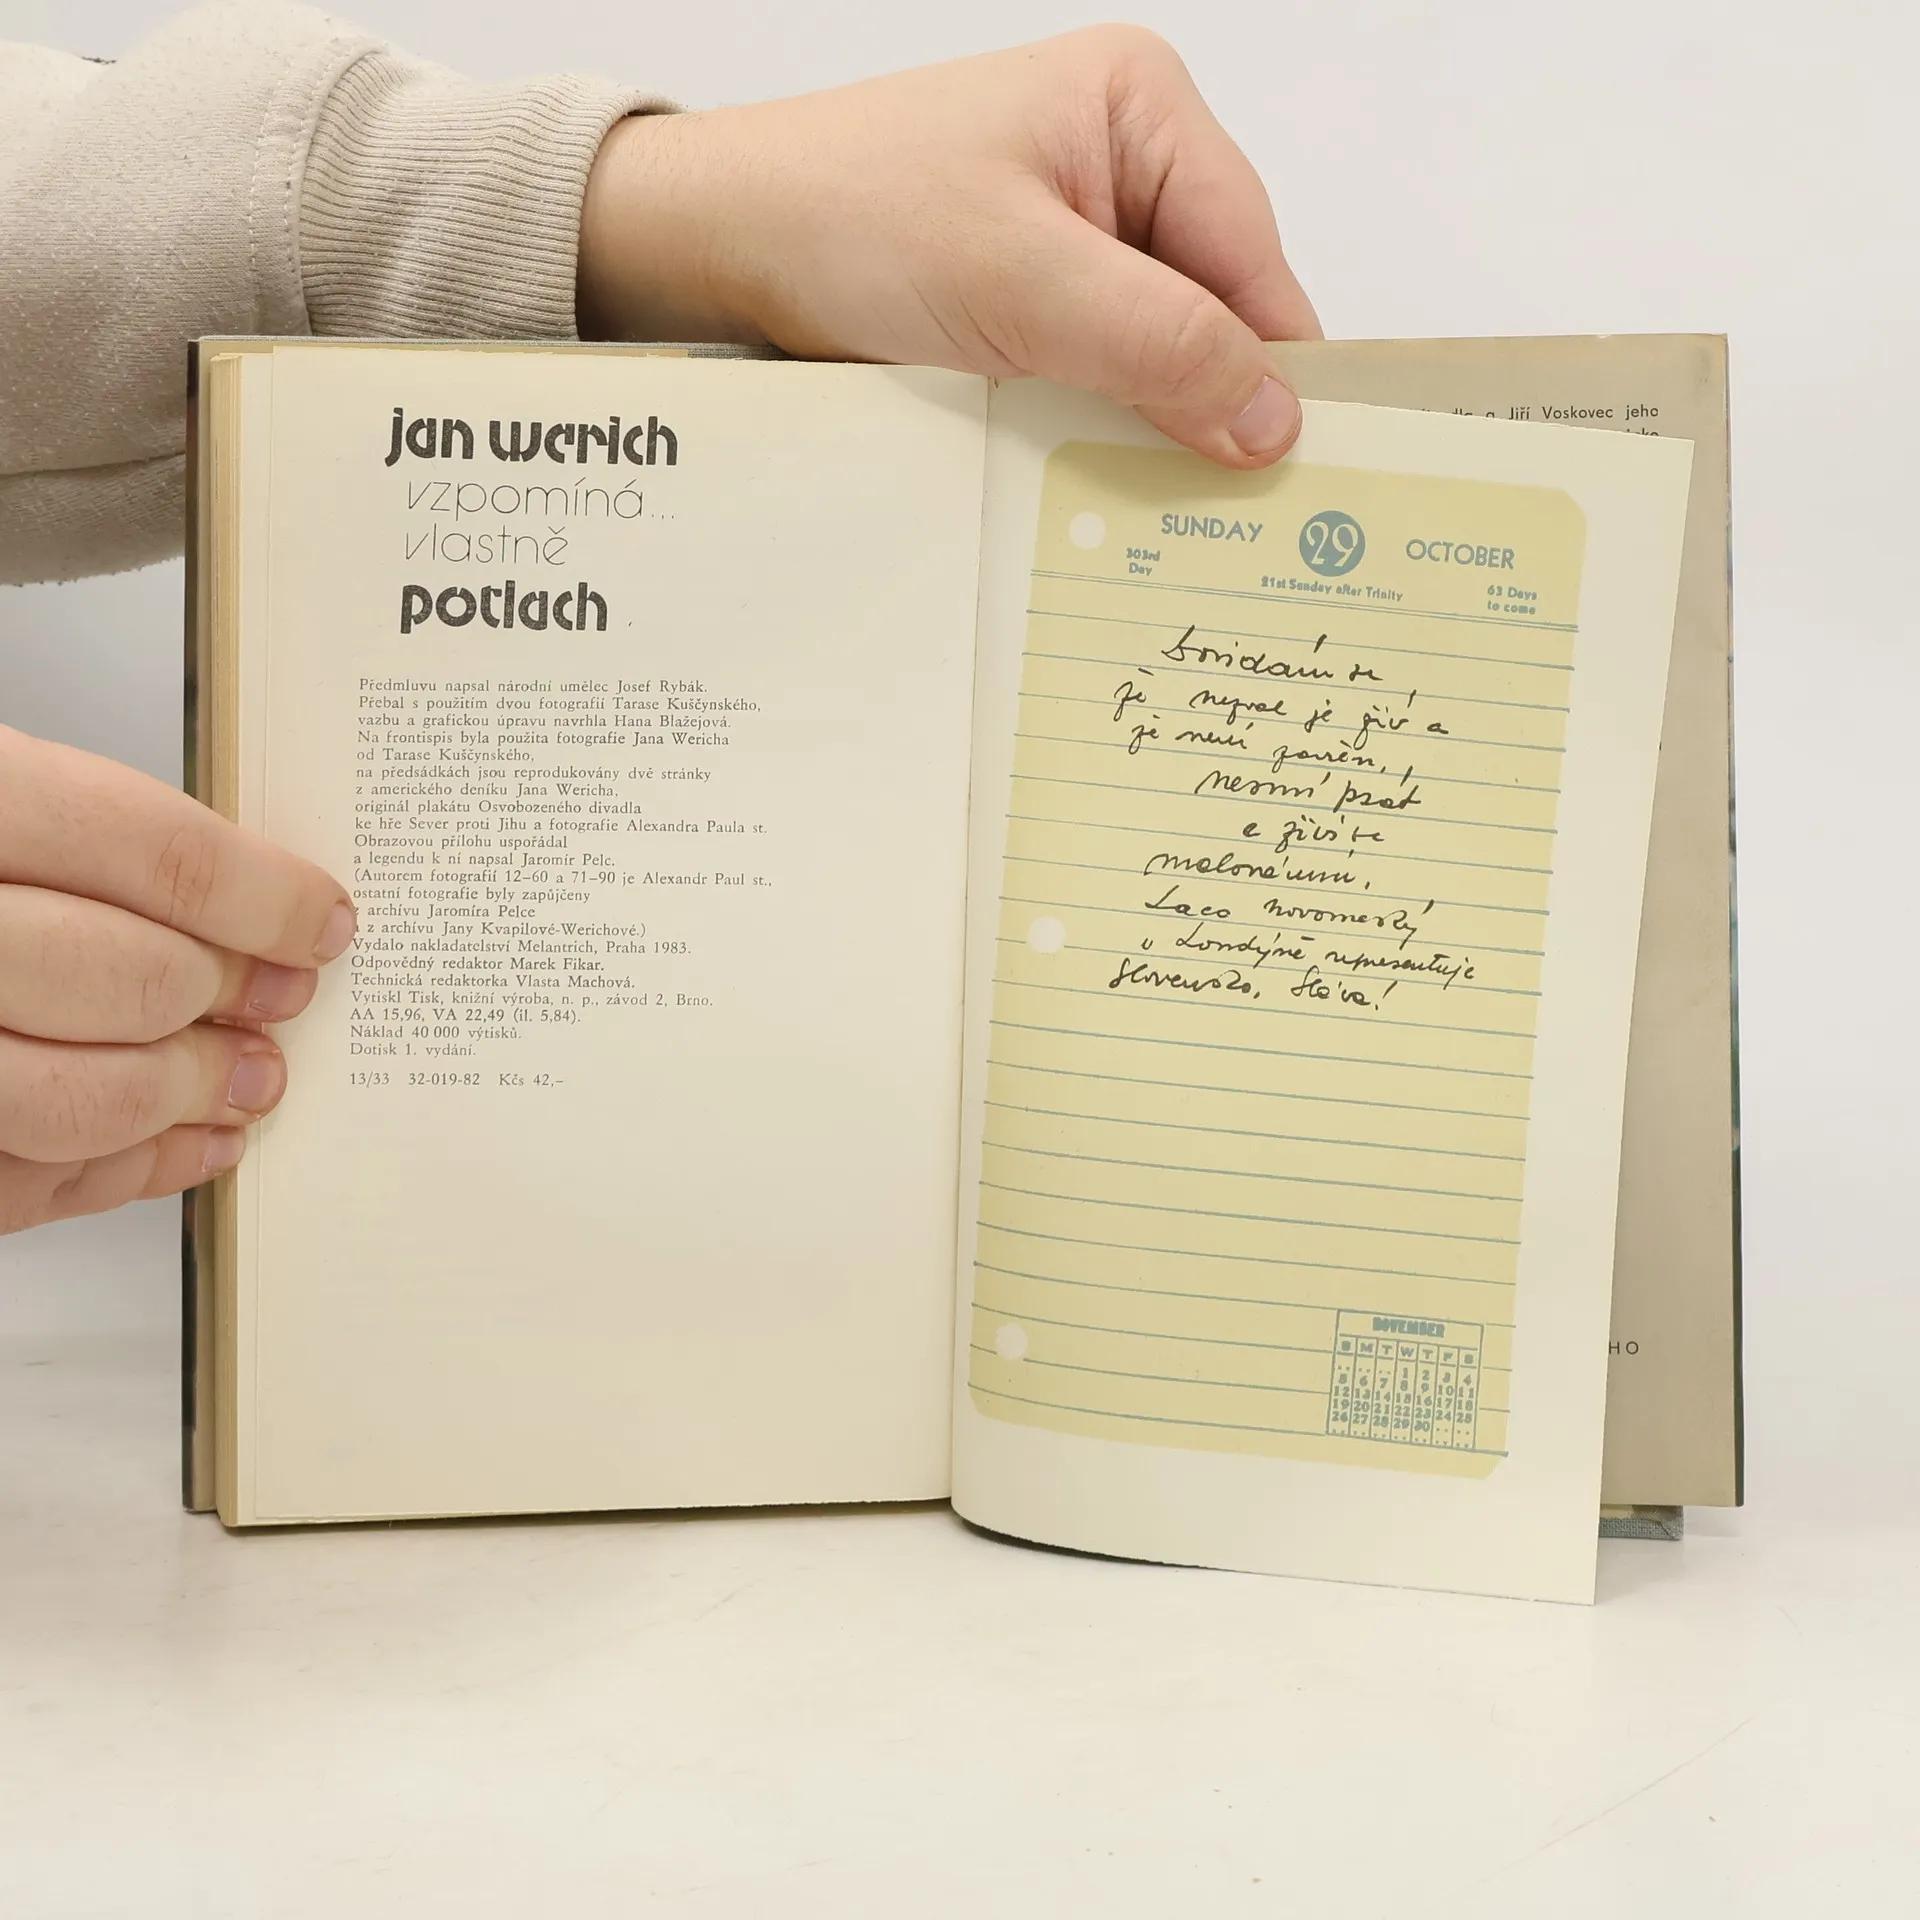 jan werich
vzpomíná...
vlastně
potlach
Předmluvu napsal národní umělec Josef Rybák.
Přebal s použitím dvou fotografií Tarase Kuščynského,
vazbu a grafickou úpravu navrhla Hana Blažejová.
Na frontispis byla použita fotografie Jana Wericha
od Tarase Kuščynského,
na předsádkách jsou reprodukovány dvě stránky
z amerického deníku Jana Wericha,
originál plakátu Osvobozeného divadla
ke hře Sever proti Jihu a fotografie Alexandra Paula st.
Obrazovou přílohu uspořádal
a legendu k ní napsal Jaromír Pelc.
(Autorem fotografií 12–60 a 71–90 je Alexandr Paul st.,
ostatní fotografie byly zapůjčeny
z archívu Jaromíra Pelce
a z archívu Jany Kvapilové-Werichové.)
Vydalo nakladatelství Melantrich, Praha 1983.
Odpovědný redaktor Marek Fikar.
Technická redaktorka Vlasta Machová.
Vytiskl Tisk, knižní výroba, n. p., závod 2, Brno.
AA 15,96, VA 22,49 (il. 5,84).
Náklad 40 000 výtisků.
Dotisk 1. vydání.
13/33 32-019-82 Kčs 42,–
Jiří Voskovec jeho
SUNDAY 29 OCTOBER
303rd Day
21st Sunday after Trinity
63 Days to come
Dovídám se
že nezval je živ a
že není zavřen,
nesmí psát
a živí se
malováním.
Laco novomeský
v Londýně representuje
Slovensko. Sláva!
NOVEMBER
S M T W T F S
.. .. .. 1 2 3 4
5 6 7 8 9 10 11
12 13 14 15 16 17 18
19 20 21 22 23 24 25
26 27 28 29 30 .. ..
HO